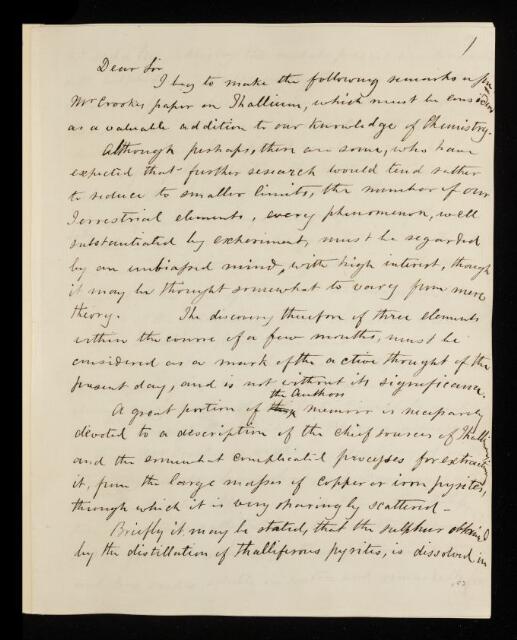 1
Dear Sir
I beg to make the following remarks upon
Mr Crookes paper on Thallium, which must be considered
as a valuable addition to our knowledge of Chemistry.
Although perhaps, there are some, who have
expected that further research would tend rather
to reduce to smaller limits, the number of our
Terrestrial elements, every phenomenon, well
substantiated by experiment, must be regarded
by an unbiassed mind, with high interest, though
it may be thought somewhat to vary from mere
theory. The discovery therefore of three elements
within the course of a few months, must be
considered as a mark of the active thought of the
present day, and is not without its significance.
the Authors
A great portion of memoir is necessarily
devoted to a description of the chief sources of Thallium
and the somewhat complicated processes for extracting
it, from the large masses of copper or iron pyrites,
through which it is very sparingly scattered -
Briefly it may be stated, that the sulphur obtained
by the distillation of thalliferous pyrites, is dissolved in